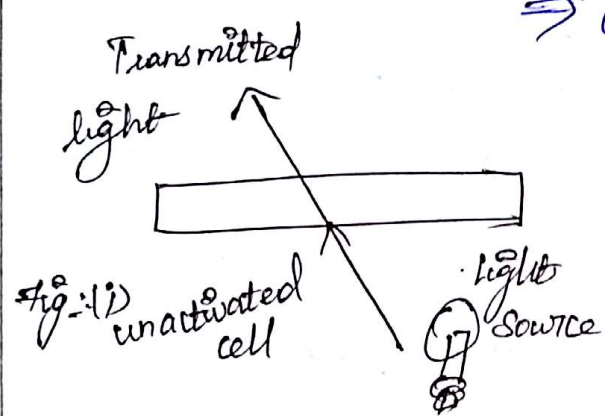 Transmitted
light
Fig:(1)
unactivated
cell
light
source